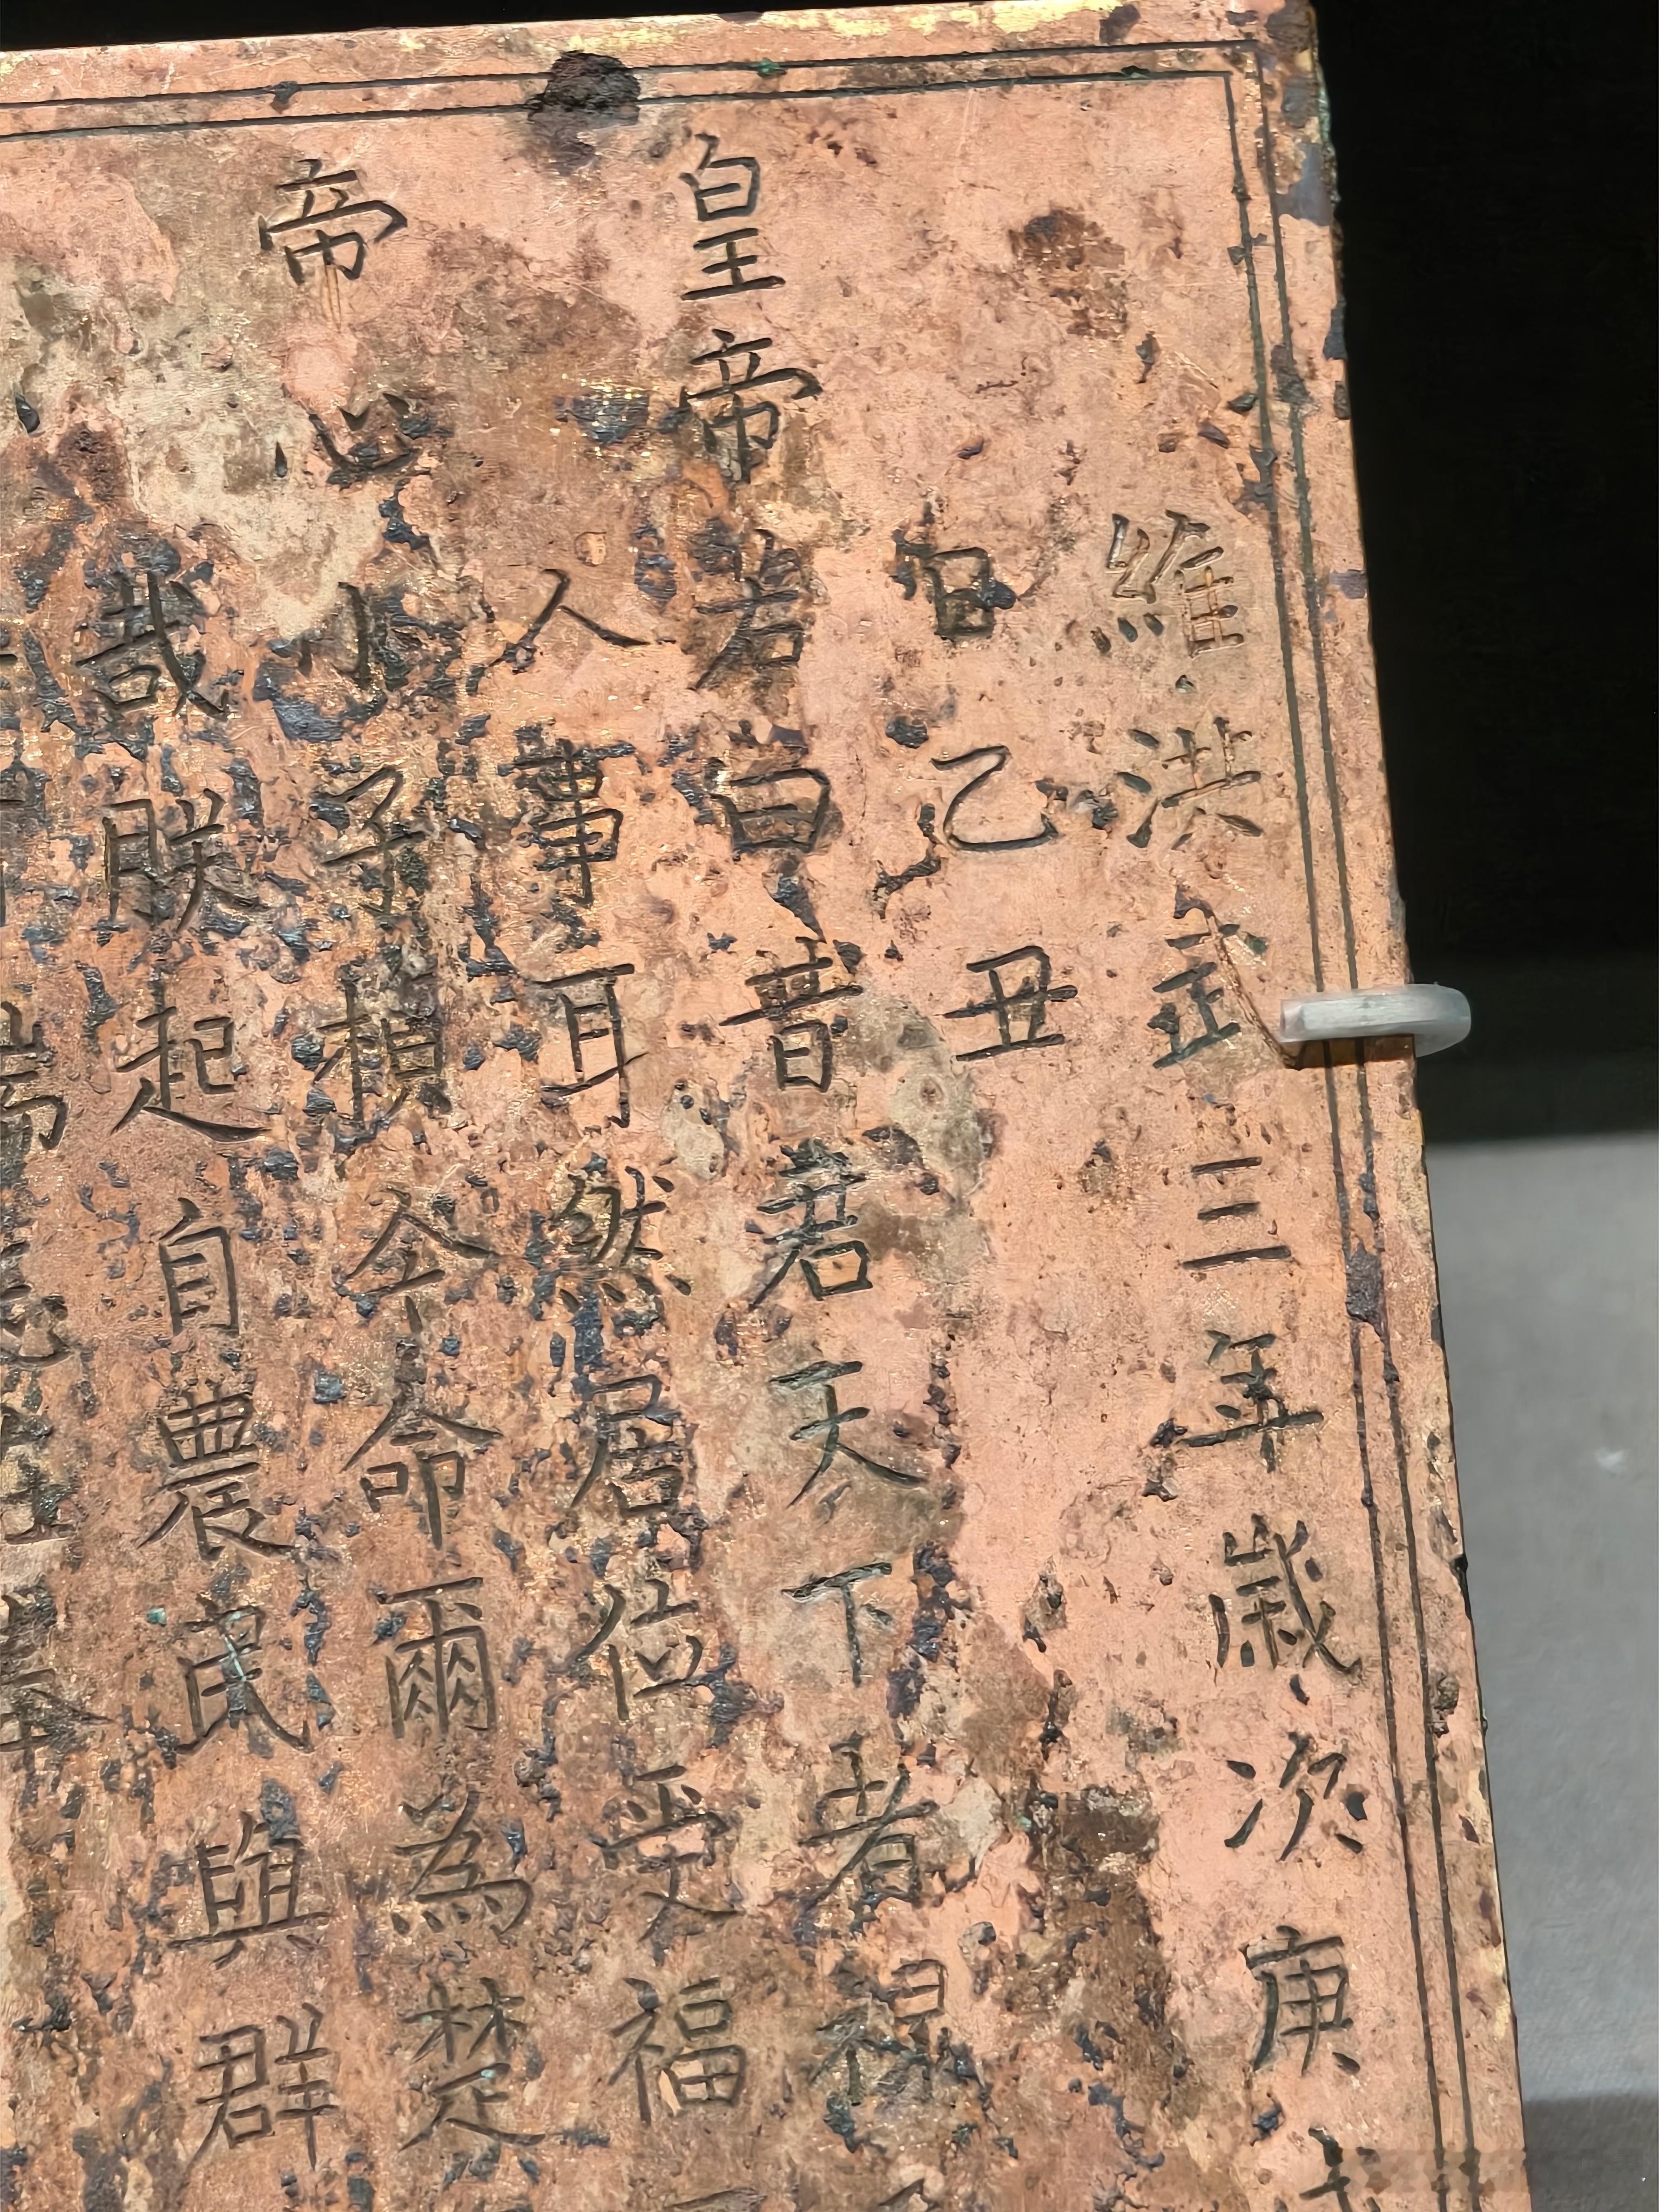 維洪武三年歲次庚
日乙丑
皇帝若曰昔君天下者禄
人事耳然居位受福
帝心小子楨今命爾為楚
哉朕起自農民與群